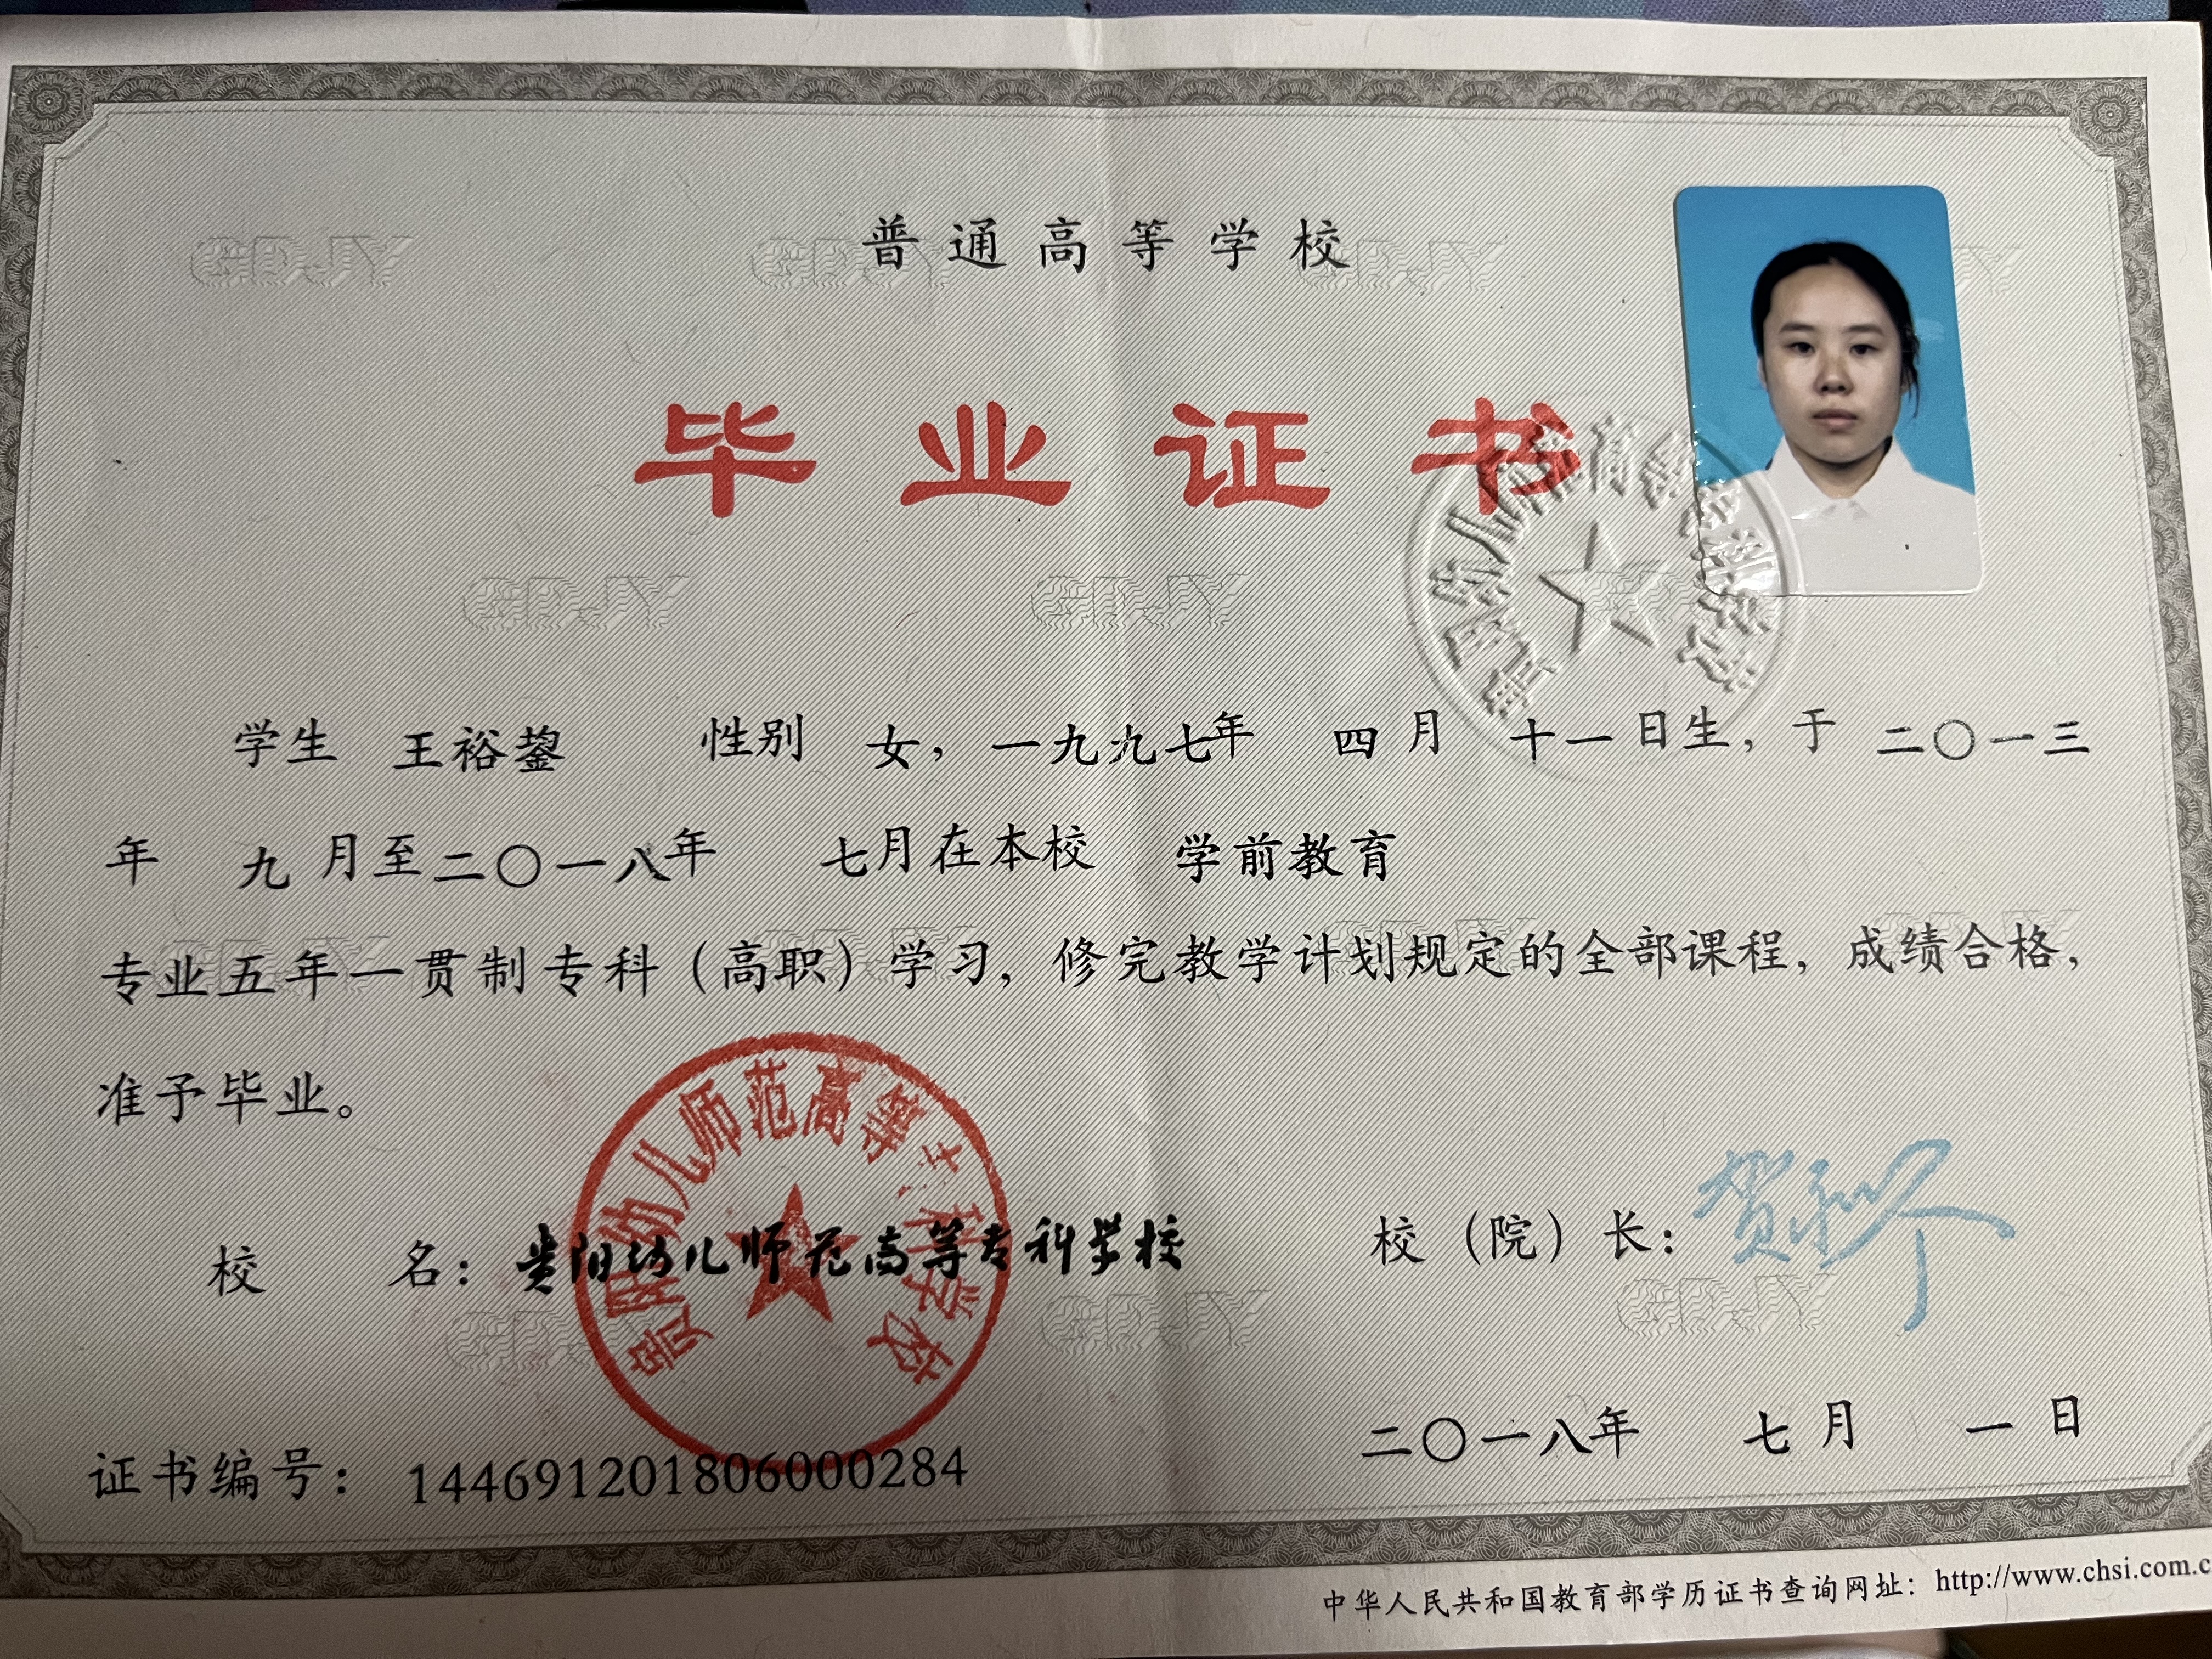 普通高等学校
毕业证书
学生 王裕鋆 性别 女，一九九七年 四月 十一日生，于 二〇一三
年 九月至二〇一八年 七月在本校 学前教育
专业五年一贯制专科（高职）学习，修完教学计划规定的全部课程，成绩合格，
准予毕业。
校 名：贵阳幼儿师范高等专科学校 校（院）长：
贵阳幼儿师范高等专科学校
贵阳幼儿师范高等专科学校
二〇一八年 七月 一日
证书编号：144691201806000284
中华人民共和国教育部学历证书查询网址：http://www.chsi.com.c
GDJY GDJY GDJY
GDJY GDJY
GDJY GDJY GDJY